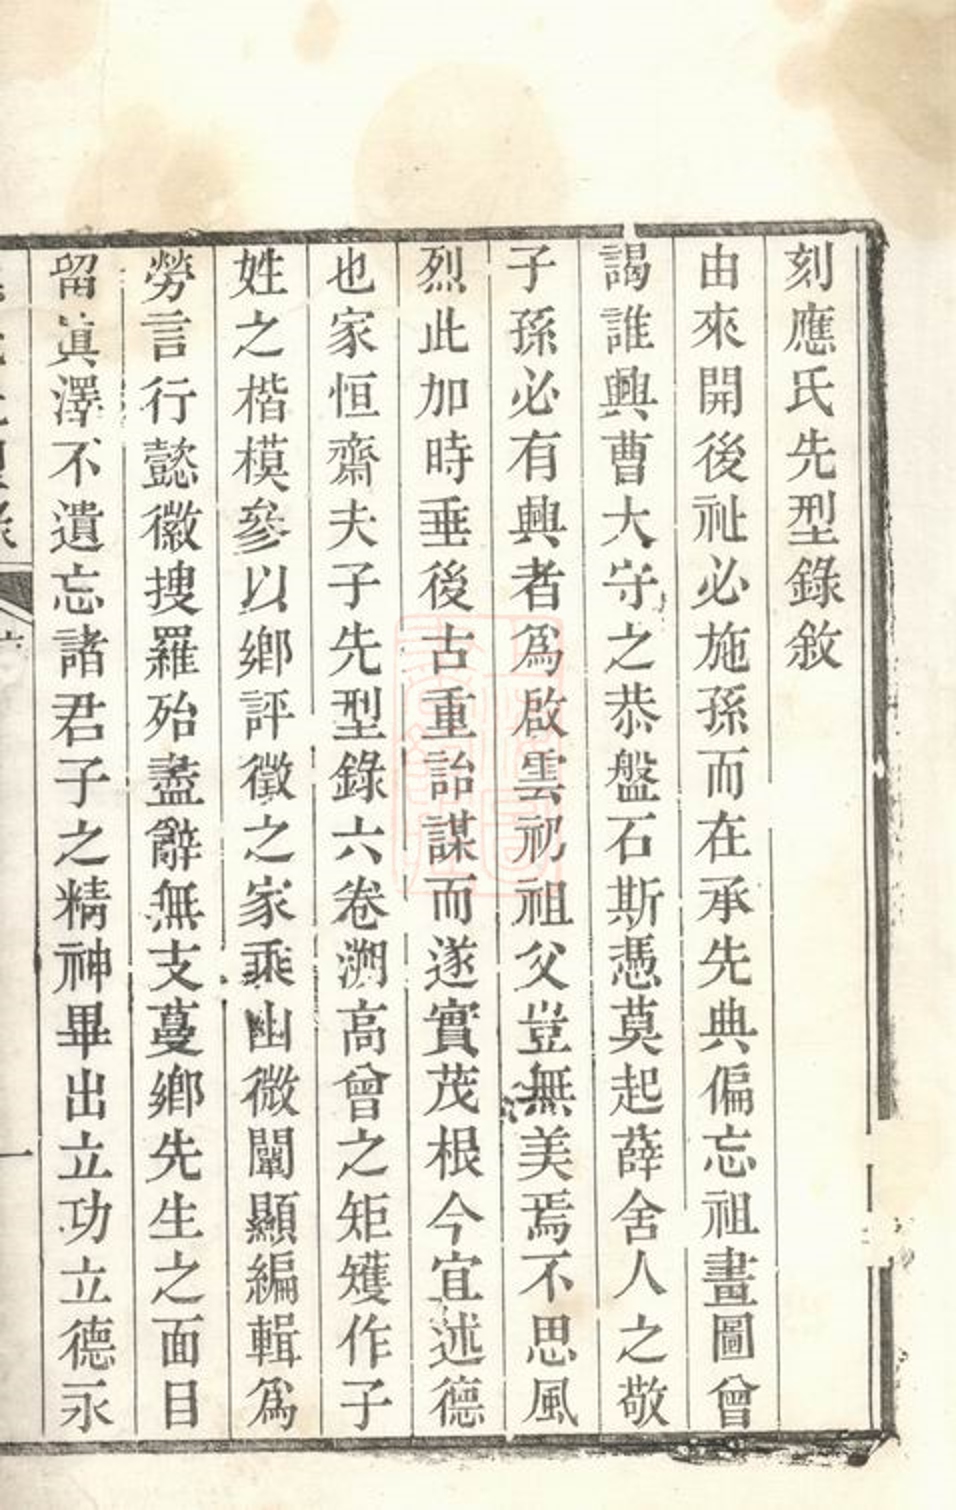 刻應氏先型錄敘
由來開後祉必施孫而在承先典偏忘祖畫圖曾
謁誰興曹大守之恭盤石斯憑莫起薛舍人之敬
子孫必有興者爲啟雲礽祖父豈無美焉不思風
烈此加時垂後古重詒謀而遂實茂根今宜述德
也家恒齋夫子先型錄六卷溯高曾之矩矱作子
姓之楷模參以鄉評徵之家乘幽微闡顯編輯爲
勞言行懿徽搜羅殆盡辭無支蔓鄉先生之面目
留眞澤不遺忘諸君子之精神畢出立功立德永
一